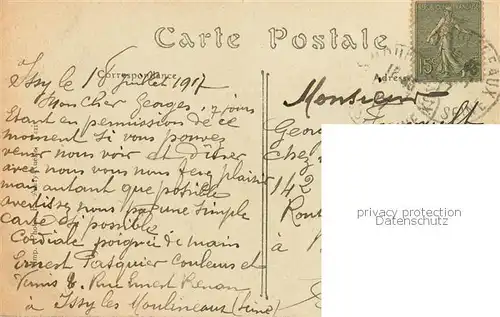 Carte Postale
Correspondance
Adresse
Issy le 1 Juillet 1917
Mon cher Georges, 7 jours
Etant en permission de ce
moment si vous pouvez
venir nous voir et dîner
avec nous vous nous ferez plaisir
mais autant que posible
avertisez nous par une simple
carte si possible
Cordiale poignée de main
Ernest Pasquier couleurs et
Vernis 8 Rue Ernest Renan
à Issy les Moulineaux (Seine)
Monsieur
Geor
chez
142
Rout
à
15
privacy protection
Datenschutz